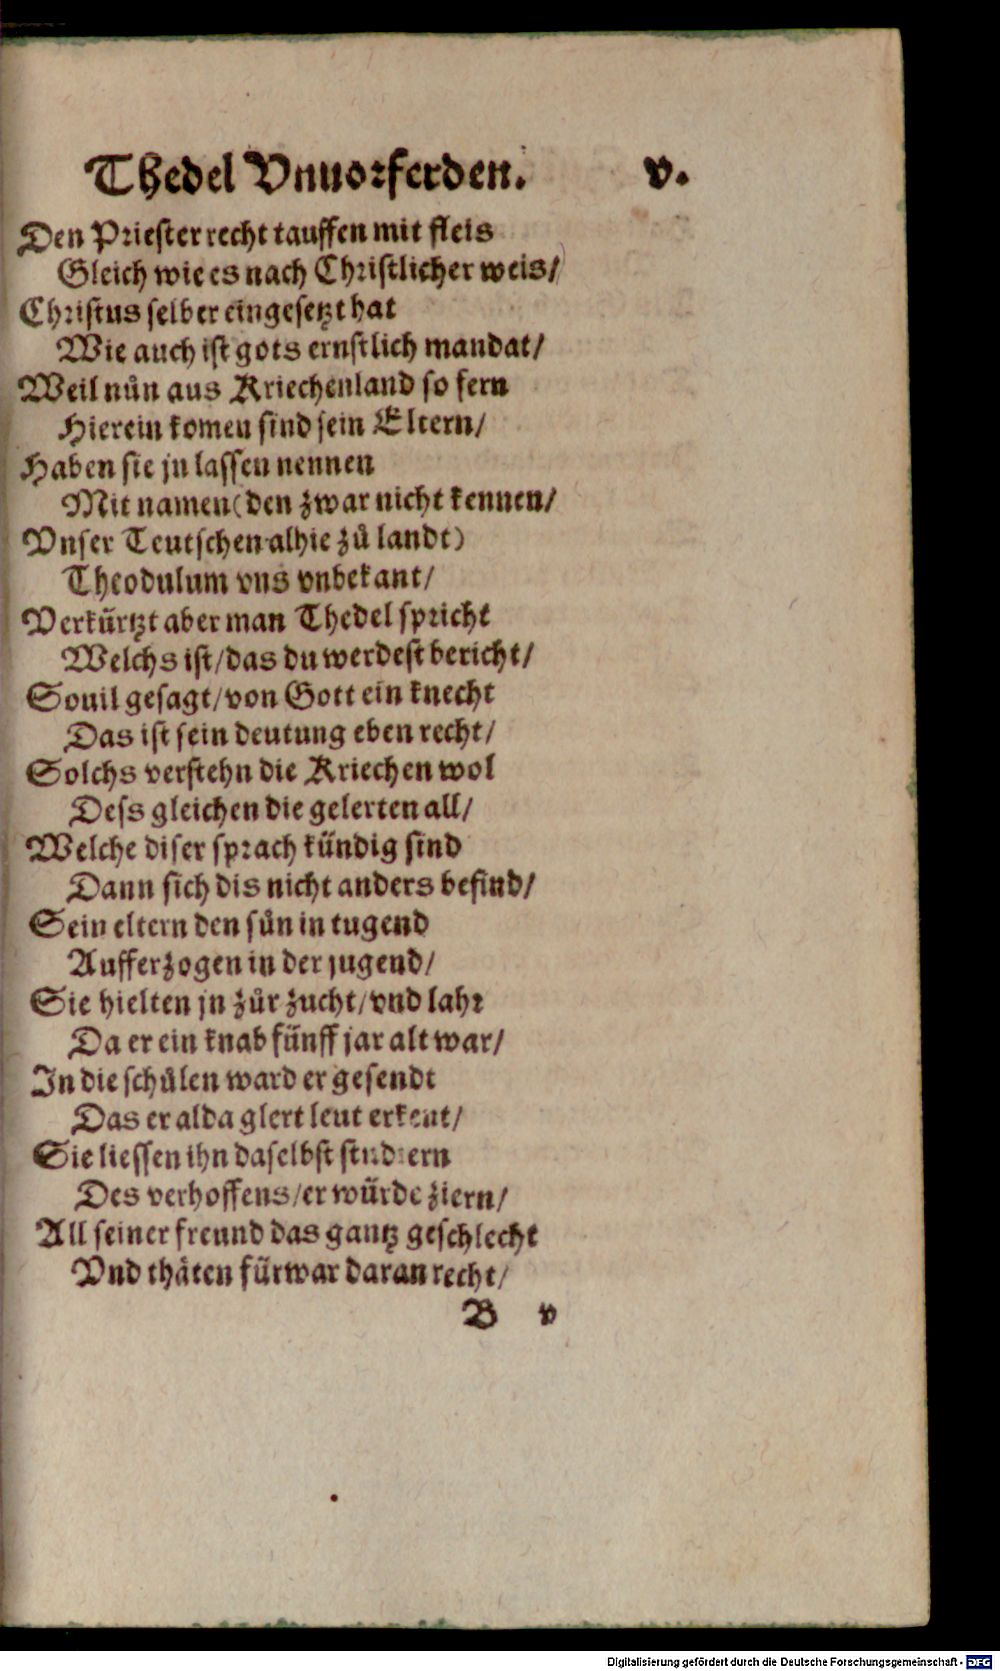 Thedel Vnuorferden. v.
Den Priester recht tauffen mit fleis
Gleich wie es nach Christlicher weis/
Christus selber eingesetzt hat
Wie auch ist gots ernstlich mandat/
Weil nůn aus Kriechenland so fern
Hierein komen sind sein Eltern/
Haben sie jn lassen nennen
Mit namen (den zwar nicht kennen/
Vnser Teutschen alhie zů landt)
Theodulum vns vnbekant/
Verkürtzt aber man Thedel spricht
Welchs ist/das du werdest bericht/
Souil gesagt/von Gott ein knecht
Das ist sein deutung eben recht/
Solchs verstehn die Kriechen wol
Dess gleichen die gelerten all/
Welche diser sprach kündig sind
Dann sich dis nicht anders befind/
Sein eltern den sůn in tugend
Aufferzogen in der jugend/
Sie hielten jn zůr zucht/vnd lahr
Da er ein knab fünff jar alt war/
In die schůlen ward er gesendt
Das er alda glert leut erkent/
Sie liessen ihn daselbst studiern
Des verhoffens/er würde ziern/
All seiner freund das gantz geschlecht
Vnd thäten fürwar daran recht/
B v
Digitalisierung gefördert durch die Deutsche Forschungsgemeinschaft - DFG